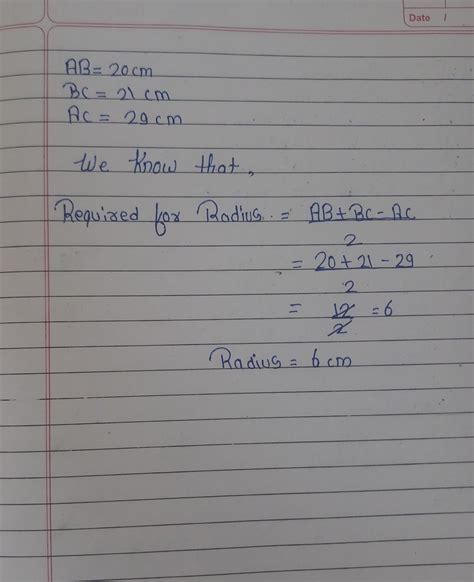 Date /
AB = 20cm
BC = 21 cm
AC = 29 cm
We know that,
Required for Radius = AB + BC - AC
2
= 20 + 21 - 29
2
= 12 = 6
2
Radius = 6 cm